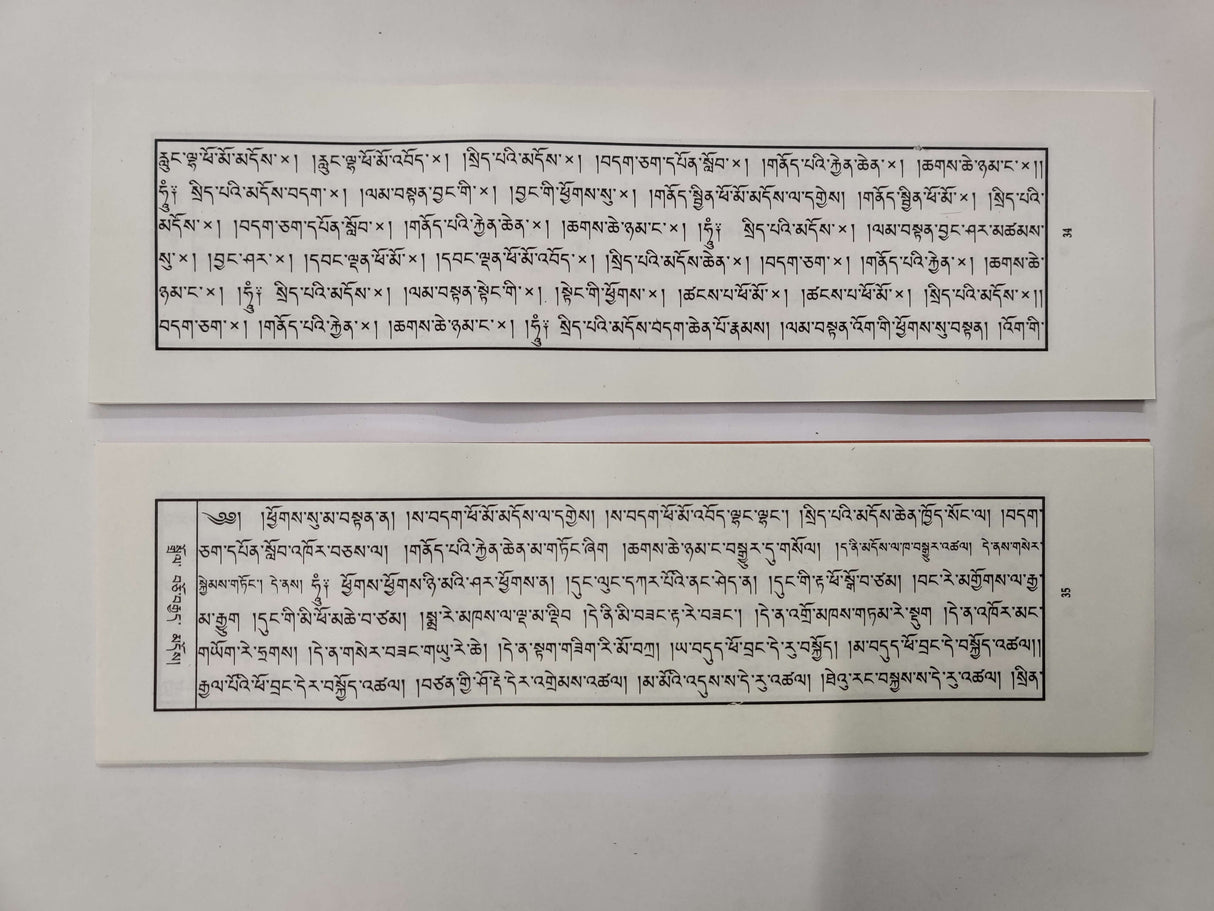 རླུང་ལྷ་ཕོ་མོ་མདོས་×། །རླུང་ལྷ་ཕོ་མོ་འབོད་×། །སྲིད་པའི་མདོས་×། །བདག་ཅག་དཔོན་སློབ་×། །གནོད་པའི་རྐྱེན་ཆེན་×། །ཆགས་ཆེ་ཉམ་ང་×།།
ཧཱུྃ༔ སྲིད་པའི་མདོས་བདག་×། །ལམ་བསྟན་བྱང་གི་×། །བྱང་གི་ཕྱོགས་སུ་×། །གནོད་སྦྱིན་ཕོ་མོ་མདོས་ལ་དགྱེས། །གནོད་སྦྱིན་ཕོ་མོ་×། །སྲིད་པའི་
མདོས་×། །བདག་ཅག་དཔོན་སློབ་×། །གནོད་པའི་རྐྱེན་ཆེན་×། །ཆགས་ཆེ་ཉམ་ང་×། །ཧཱུྃ༔ སྲིད་པའི་མདོས་×། །ལམ་བསྟན་བྱང་ཤར་མཚམས་
སུ་×། །བྱང་ཤར་×། །དབང་ལྡན་ཕོ་མོ་×། །དབང་ལྡན་ཕོ་མོ་འབོད་×། །སྲིད་པའི་མདོས་ཆེན་×། །བདག་ཅག་×། །གནོད་པའི་རྐྱེན་×། །ཆགས་ཆེ་
ཉམ་ང་×། །ཧཱུྃ༔ སྲིད་པའི་མདོས་×། །ལམ་བསྟན་སྟེང་གི་×། །སྟེང་གི་ཕྱོགས་×། །ཚངས་པ་ཕོ་མོ་×། །ཚངས་པ་ཕོ་མོ་×། །སྲིད་པའི་མདོས་×།།
བདག་ཅག་×། །གནོད་པའི་རྐྱེན་×། །ཆགས་ཆེ་ཉམ་ང་×། །ཧཱུྃ༔ སྲིད་པའི་མདོས་བདག་ཆེན་པོ་རྣམས། །ལམ་བསྟན་འོག་གི་ཕྱོགས་སུ་བསྟན། །འོག་གི་
34
༄༅། །ཕྱོགས་སུ་མ་བསྟན་ན། །ས་བདག་ཕོ་མོ་མདོས་ལ་དགྱེས། །ས་བདག་ཕོ་མོ་འབོད་ལྷང་ལྷང་། །སྲིད་པའི་མདོས་ཆེན་ཁྱོད་སོང་ལ། །བདག་
ཅག་དཔོན་སློབ་འཁོར་བཅས་ལ། །གནོད་པའི་རྐྱེན་ཆེན་མ་གཏོང་ཞིག །ཆགས་ཆེ་ཉམ་ང་བསྒྱུར་དུ་གསོལ། །ད་ནི་མདོས་ལ་ཁ་བསྒྱུར་འཚལ། དེ་ནས་གསེར་
སྐྱེམས་གཏོང་། དེ་ནས། ཧཱུྃ༔ ཕྱོགས་ཕྱོགས་ཉི་མའི་ཤར་ཕྱོགས་ན། །དུང་ལུང་དཀར་པོའི་ནང་ཤེད་ན། །དུང་གི་རྟ་ཕོ་སྒོ་བ་ཙམ། །བང་རེ་མགྱོགས་ལ་རྒྱ་
མ་རྒྱུག །དུང་གི་མི་ཕོ་མཆེ་བ་ཙམ། །སྨྲ་རེ་མཁས་ལ་ལྡ་མ་ལྡིབ །དེ་ནི་མི་བཟང་རྟ་རེ་བཟང་། །དེ་ན་འགྲོ་མཁས་གཏམ་རེ་སྡུག །དེ་ན་འཁོར་མང་
གཡོག་རེ་དྲགས། །དེ་ན་གསེར་བཟང་གཡུ་རེ་ཆེ། །དེ་ན་སྟག་གཟིག་རི་མོ་བཀྲ། །ཡ་བདུད་ཕོ་བྲང་དེ་རུ་བསྐྱོད། །མ་བདུད་ཕོ་བྲང་དེ་བསྐྱོད་འཚལ།།
རྒྱལ་པོའི་ཕོ་བྲང་དེར་བསྐྱོད་འཚལ། །བཙན་གྱི་ཤོ་རྡེ་དེར་འགྲེམས་འཚལ། །མ་མོའི་འདུས་ས་དེ་རུ་འཚལ། །ཐེའུ་རང་བསྐྱས་ས་དེ་རུ་འཚལ། །སྲིན་
35